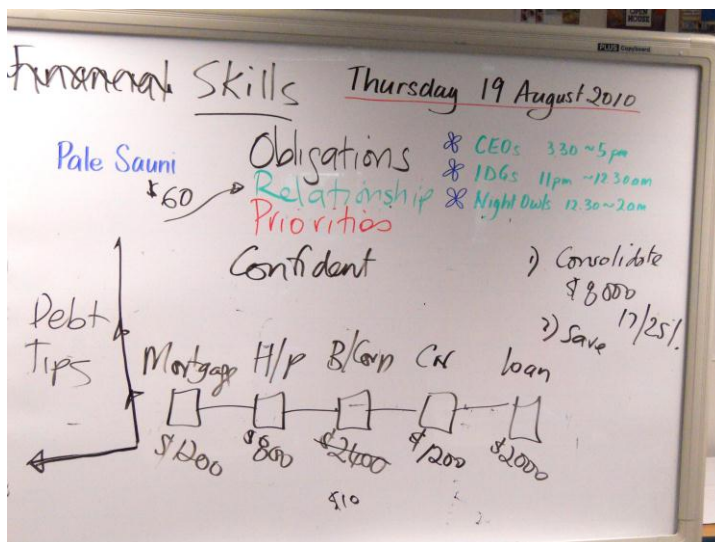 Financial Skills
Thursday 19 August 2010
PLUS Copyboard
Pale Sauni
$60
Obligations
Relationship
Priorities
Confident
CEOs 330 ~ 5pm
IDGs 11pm ~ 12.30am
Night Owls 12.30 ~ 2am
1) Consolidate
$8000
2) Save 17/25%
Debt
Tips
Mortgage H/P B/Corp CN loan
$1200 $800 $2400 $1200 $2000
$10